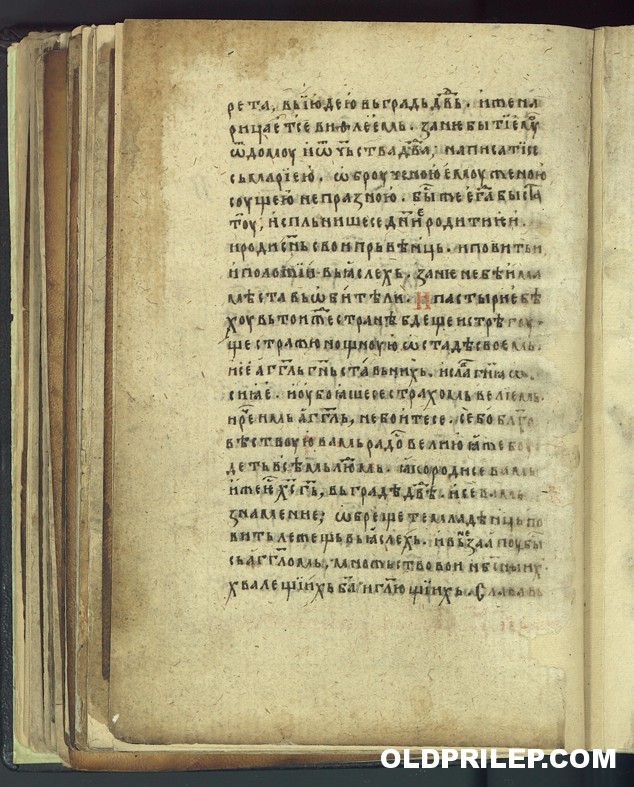 рета, въ їюдею въ градь дв҃вь. иже на
рицает се виѳлеемь. зание бытїему
ѿ дому и ѿ ч҃ьства дв҃да, написатї се
съ марїею. обрученою емоу женою
соущею непразною. бы же егда быста
тоу, исплънише се дн҃и родити еи.
и роди сн҃ь свои прьвѣнць. и повить и
и положи и въ ꙗслехь. зание не бѣ има
мѣста въ обитѣли. И пастырие бѣ
хоу въ тои же странѣ бдеще и стрѣгоу
ще стражю нощноую ѡ стадѣ своемь.
и се агг҃ль гн҃ь ста въ нихь. и слава гн҃ꙗ ѡ
сиꙗ е. и оубоꙗше се страхомь велїемь.
и рече имь агг҃ль, не боите се. се бо благо
вѣствоую вамь радо велию ꙗже бо
деть всѣмь людмь. ꙗко роди се вамь
иже е х҃с г҃ь, въ градѣ дв҃вѣ. и се вамь
знамение; обрещете младѣнць по
вить лежещь въ ꙗслехь. и вьнезаапоу бы
сь агг҃ломь, множьство вои нб҃сныихь
хвалещїихь б҃а и гл҃ющїихь. Слава вь
OLDPRILEP.COM